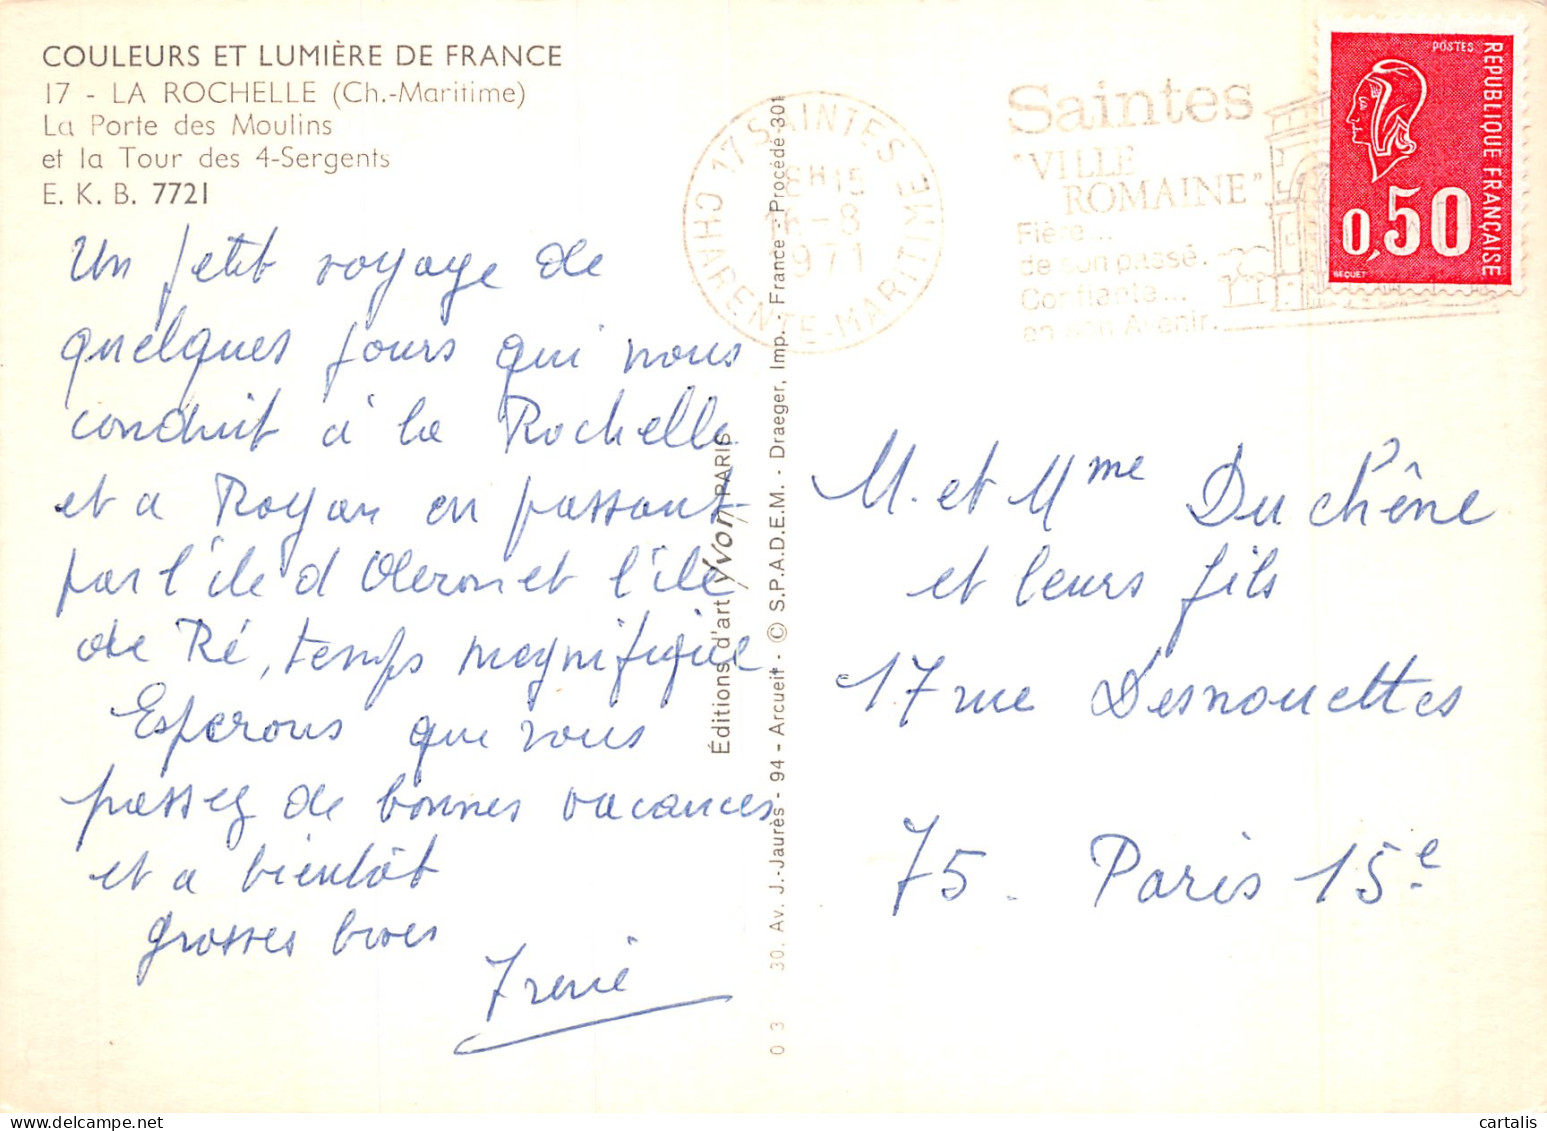 COULEURS ET LUMIÈRE DE FRANCE
17 - LA ROCHELLE (Ch.-Maritime)
La Porte des Moulins
et la Tour des 4-Sergents
E. K. B. 7721
Un petit voyage de
quelques jours qui nous
conduit à la Rochelle
et a Royan en passant
par l'île d Oleron et l'île
de Ré, temps magnifique
Esperons que vous
passez de bonnes vacances
et a bientôt
grosses bises
Irene
Éditions d'art Yvon, PARIS
30, Av. J.-Jaurès - 94 - Arcueil - © S.P.A.D.E.M. - Draeger, Imp. - France - Procédé 301
0 3
17 SAINTES
CHARENTE-MARITIME
8H15
16-8
1971
Saintes
"VILLE
ROMAINE"
Fière...
de son passé.
Confiante...
en son Avenir.
POSTES
RÉPUBLIQUE FRANÇAISE
0,50
BEQUET
M. et Mme Duchêne
et leurs fils
17 rue Desnouettes
75. Paris 15e
cartalis